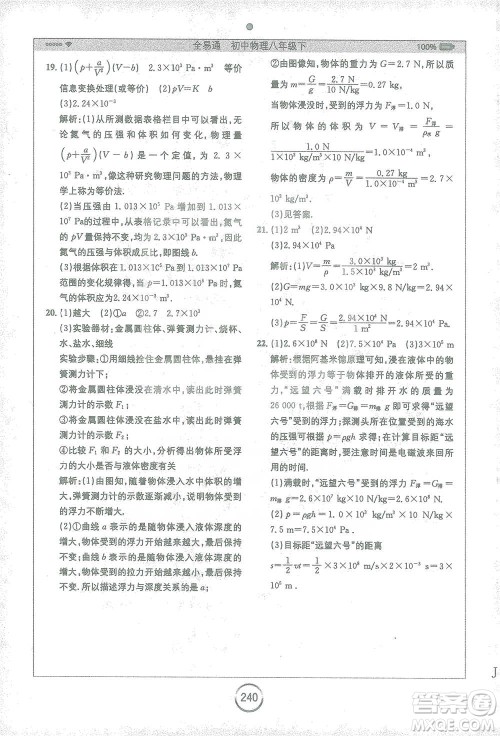 全易通 初中物理八年级下
100%
19. (1)(p+a/V²)(V-b) 2.3×10³ Pa·m³ 等价
信息变换处理(或等价) (2)pV=K b
(3)2.24×10⁻²
解析:(1)所测数据表格栏目中可以发现,无
论氮气的压强和体积如何变化,物理量
(p+a/V²)(V-b)是一个定值,为2.3×
10³ Pa·m³,这种研究物理问题的方法,物理
学上称为等价法.
(2)当压强为1.013×10⁵ Pa至1.013×
10⁶ Pa的过程中,从表格记录中可以发现,氮气
的pV量保持不变,与2.3×10³ Pa·m³相等,
故压强与体积成反比,即图线b.
(3)根据体积在1.013×10⁵ Pa至1.013×10⁶ Pa
范围的变化规律,当压强为1.013×10⁵ Pa时,氮
气的体积应为2.24×10⁻² m³.
20. (1)越大 (2)①a
(3)实验器材:金属圆柱体、弹簧测力计、烧杯、
水、盐水、细线
实验步骤:①用细线拴住金属圆柱体挂在弹簧
测力计下;
②将金属圆柱体浸没在清水中,读出此时弹簧
测力计的示数F₁;
③将金属圆柱体浸没在盐水中,读出此时弹簧
测力计的示数F₂;
④比较F₁和F₂的大小,分析出物体所受浮
力的大小是否与液体密度有关
解析:(1)随着物体浸入水中体积的增大,物体受到
的浮力不断增大.
(2)①曲线a表示的是随物体浸入液体深度的
增大,物体受到的浮力开始越来越大,最后保持
不变;曲线b表示的是随物体浸入液体深度的
增大,物体受到的拉力开始越来越小,最后保持
不变,所以描述浮力与浸入深度的曲线是a.
②由图像知,物体的重力为G=2.7 N,物体的
质量为m=G/g=2.7 N/10 N/kg=0.27 kg
当物体浸没时,受到的浮力为F浮=1.0 N
所以物体的体积V=V排=F浮/ρg=
1.0 N/1×10³ kg/m³×10 N/kg=1×10⁻⁴ m³,
物体的密度为ρ=m/V=0.27 kg/1×10⁻⁴ m³=2.7×
10³ kg/m³.
(3)见答案.
21. (1)2 m³ (2)2.94×10⁴ N
(3)2.94×10⁴ Pa
解析:(1)V=m/ρ=3.0×10³ kg/1.5×10³ kg/m³=2 m³.
(2)G=mg=3.0×10³ kg×9.8 N/kg=2.94×10⁴ N.
(3)p=F/S=G/S=2.94×10⁴ N/1 m²=2.94×
10⁴ Pa.
22. (1)2.6×10⁸ N (2)7.5×10⁴ Pa (3)3×10⁵ m
解析:根据阿基米德原理可知,浸在液体中的
物体所受的浮力等于它排开的液体所受的重
力,“远望六号”满载时排开水的质量为
26 000 t,根据F浮=G排=m排g即可求出满载时
受到的浮力;“远望六号”探头所在位置的海水
的压强可根据p=ρgh求得;在计算目标距“远
望六号”的距离时,要注意时间是电磁波来回用
的时间.
(1)满载时,“远望六号”受到的浮力F浮=G排=
m排g=2.6×10⁷ kg×10 N/kg=2.6×10⁸ N.
(2)p=ρgh=1.0×10³ kg/m³×10 N/kg×
7.5 m=7.5×10⁴ Pa.
(3)目标距“远望六号”的距离
s=1/2vt=1/2×3×10⁸ m/s×2×10⁻³ s=3×
10⁵ m.
240
J
答案圈
MXQE.COM